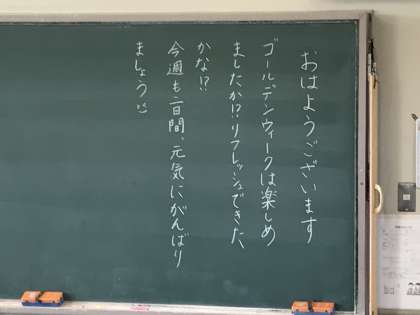 おはようございます
ゴールデンウィークは楽しめ
ましたか!?リフレッシュできた
かな!?
今週も二日間、元気にがんばり
ましょう